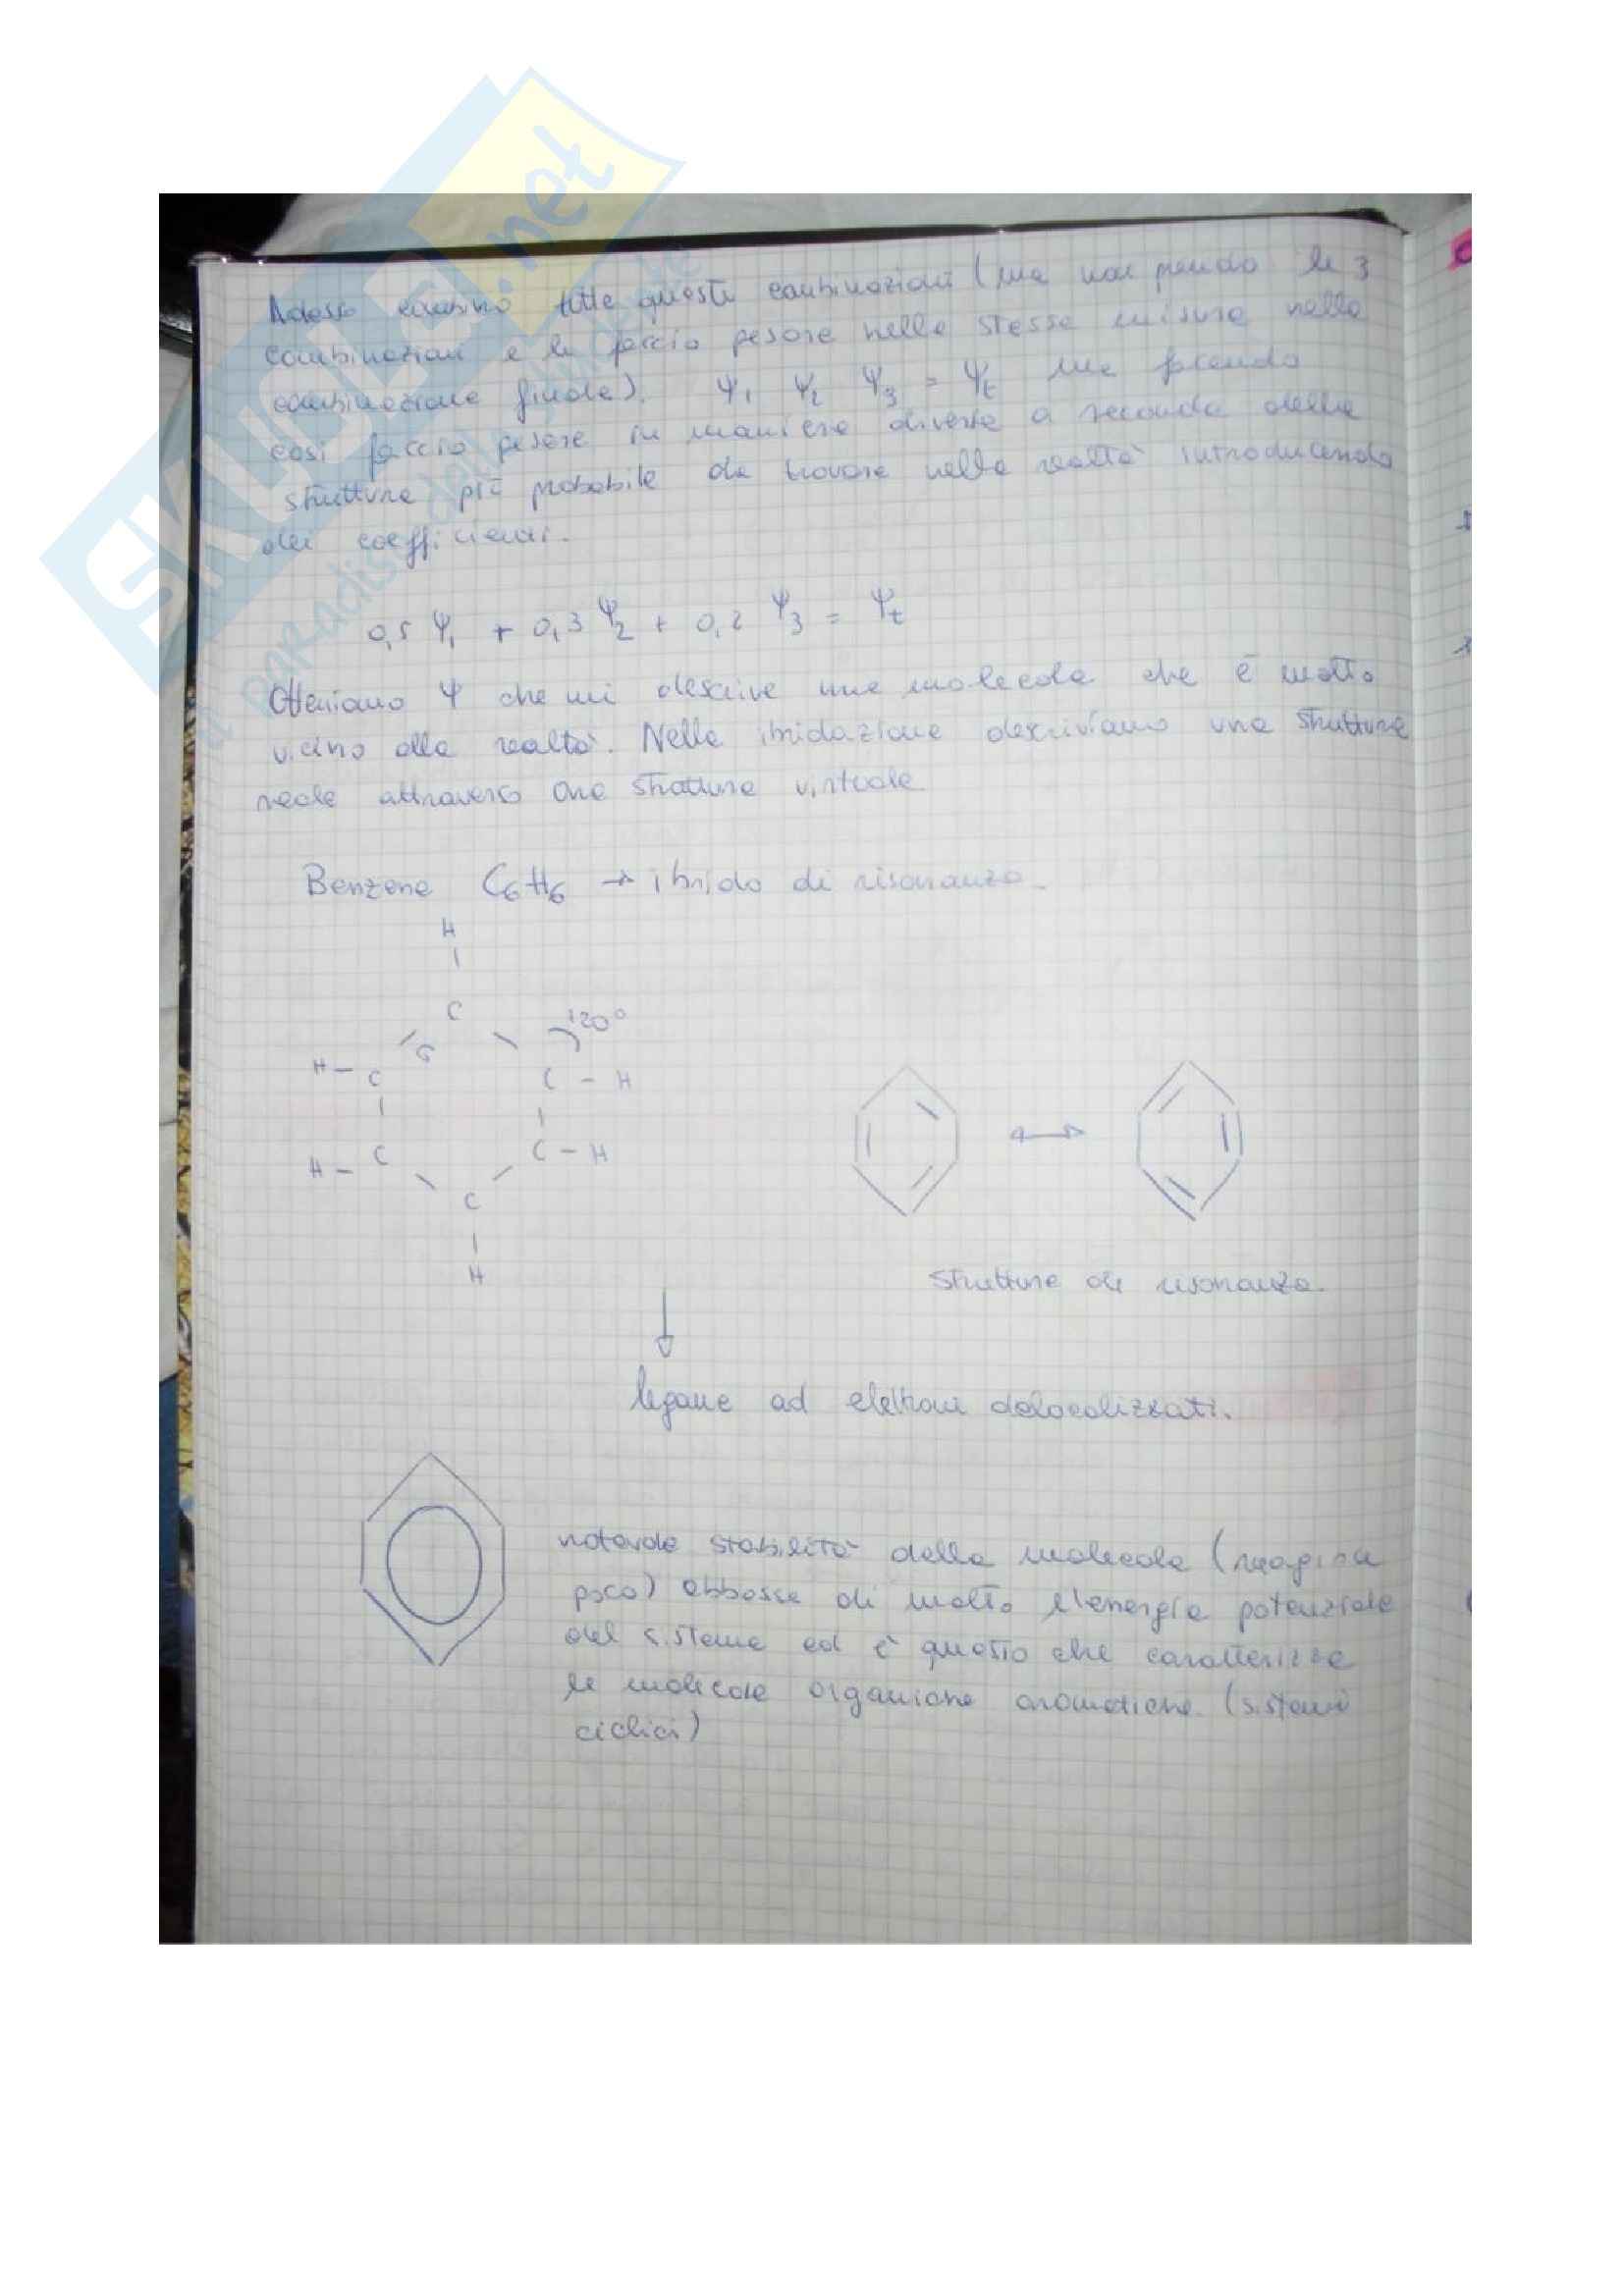 SKUOLA.net
il paradiso dello studente
Adesso combino tutte queste combinazioni (ma non prendo le 3
combinazioni e le faccio pesare nella stessa misura nella
combinazione finale). Ψ1 Ψ2 Ψ3 = Ψt ma facendo
così faccio pesare in maniera diversa a seconda della
struttura più probabile da trovare nella realtà introducendo
dei coefficienti.
0,5 Ψ1 + 0,3 Ψ2 + 0,2 Ψ3 = Ψt
Otteniamo Ψ che mi descrive una molecola che è molto
vicino alla realtà. Nella ibridazione descriviamo una struttura
reale attraverso una struttura virtuale.
Benzene C6H6 → ibrido di risonanza.
H
C
120°
σ
H - C
C - H
H - C
C - H
C
H
strutture di risonanza.
legame ad elettroni delocalizzati.
notevole stabilità della molecola (reagisce
poco) abbassa di molto l'energia potenziale
del sistema ed è questo che caratterizza
le molecole organiche aromatiche (sistemi
ciclici)